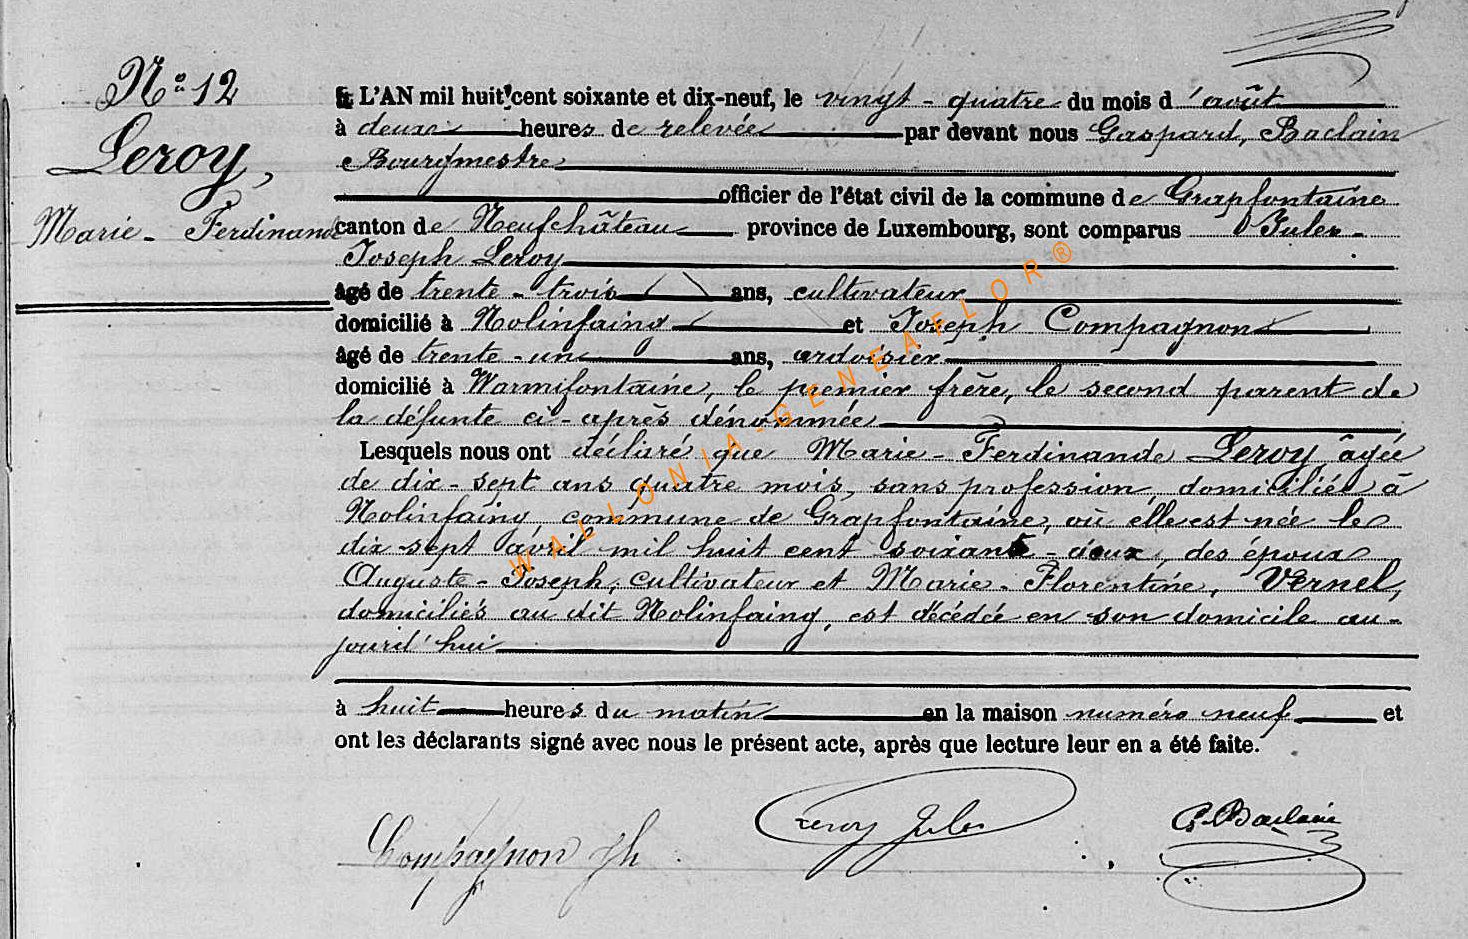 N° 12
Leroy,
Marie - Ferdinande
L'AN mil huit cent soixante et dix-neuf, le vingt - quatre du mois d'août
à deux heures de relevée par devant nous Gaspard, Baclain
Bourgmestre
officier de l'état civil de la commune de Grapfontaine
canton de Neufchâteau province de Luxembourg, sont comparus Jules -
Joseph Leroy
âgé de trente - trois ans, cultivateur
domicilié à Nolinfaing et Joseph Compagnon
âgé de trente - un ans, ardoisier
domicilié à Warmifontaine, le premier frère, le second parent de
la défunte ci - après dénommée
Lesquels nous ont déclaré que Marie - Ferdinande Leroy âgée
de dix - sept ans quatre mois, sans profession, domiciliée à
Nolinfaing, commune de Grapfontaine, où elle est née le
dix sept avril mil huit cent soixante - deux, des époux
Auguste - Joseph, cultivateur et Marie - Florentine, Vernel,
domiciliés au dit Nolinfaing, est décédée en son domicile au-
jourd'hui
à huit heures du matin en la maison numéro neuf et
ont les déclarants signé avec nous le présent acte, après que lecture leur en a été faite.
Compagnon Jh Leroy Jules G. Baclain
WALLONIA-GENEAFLOR®